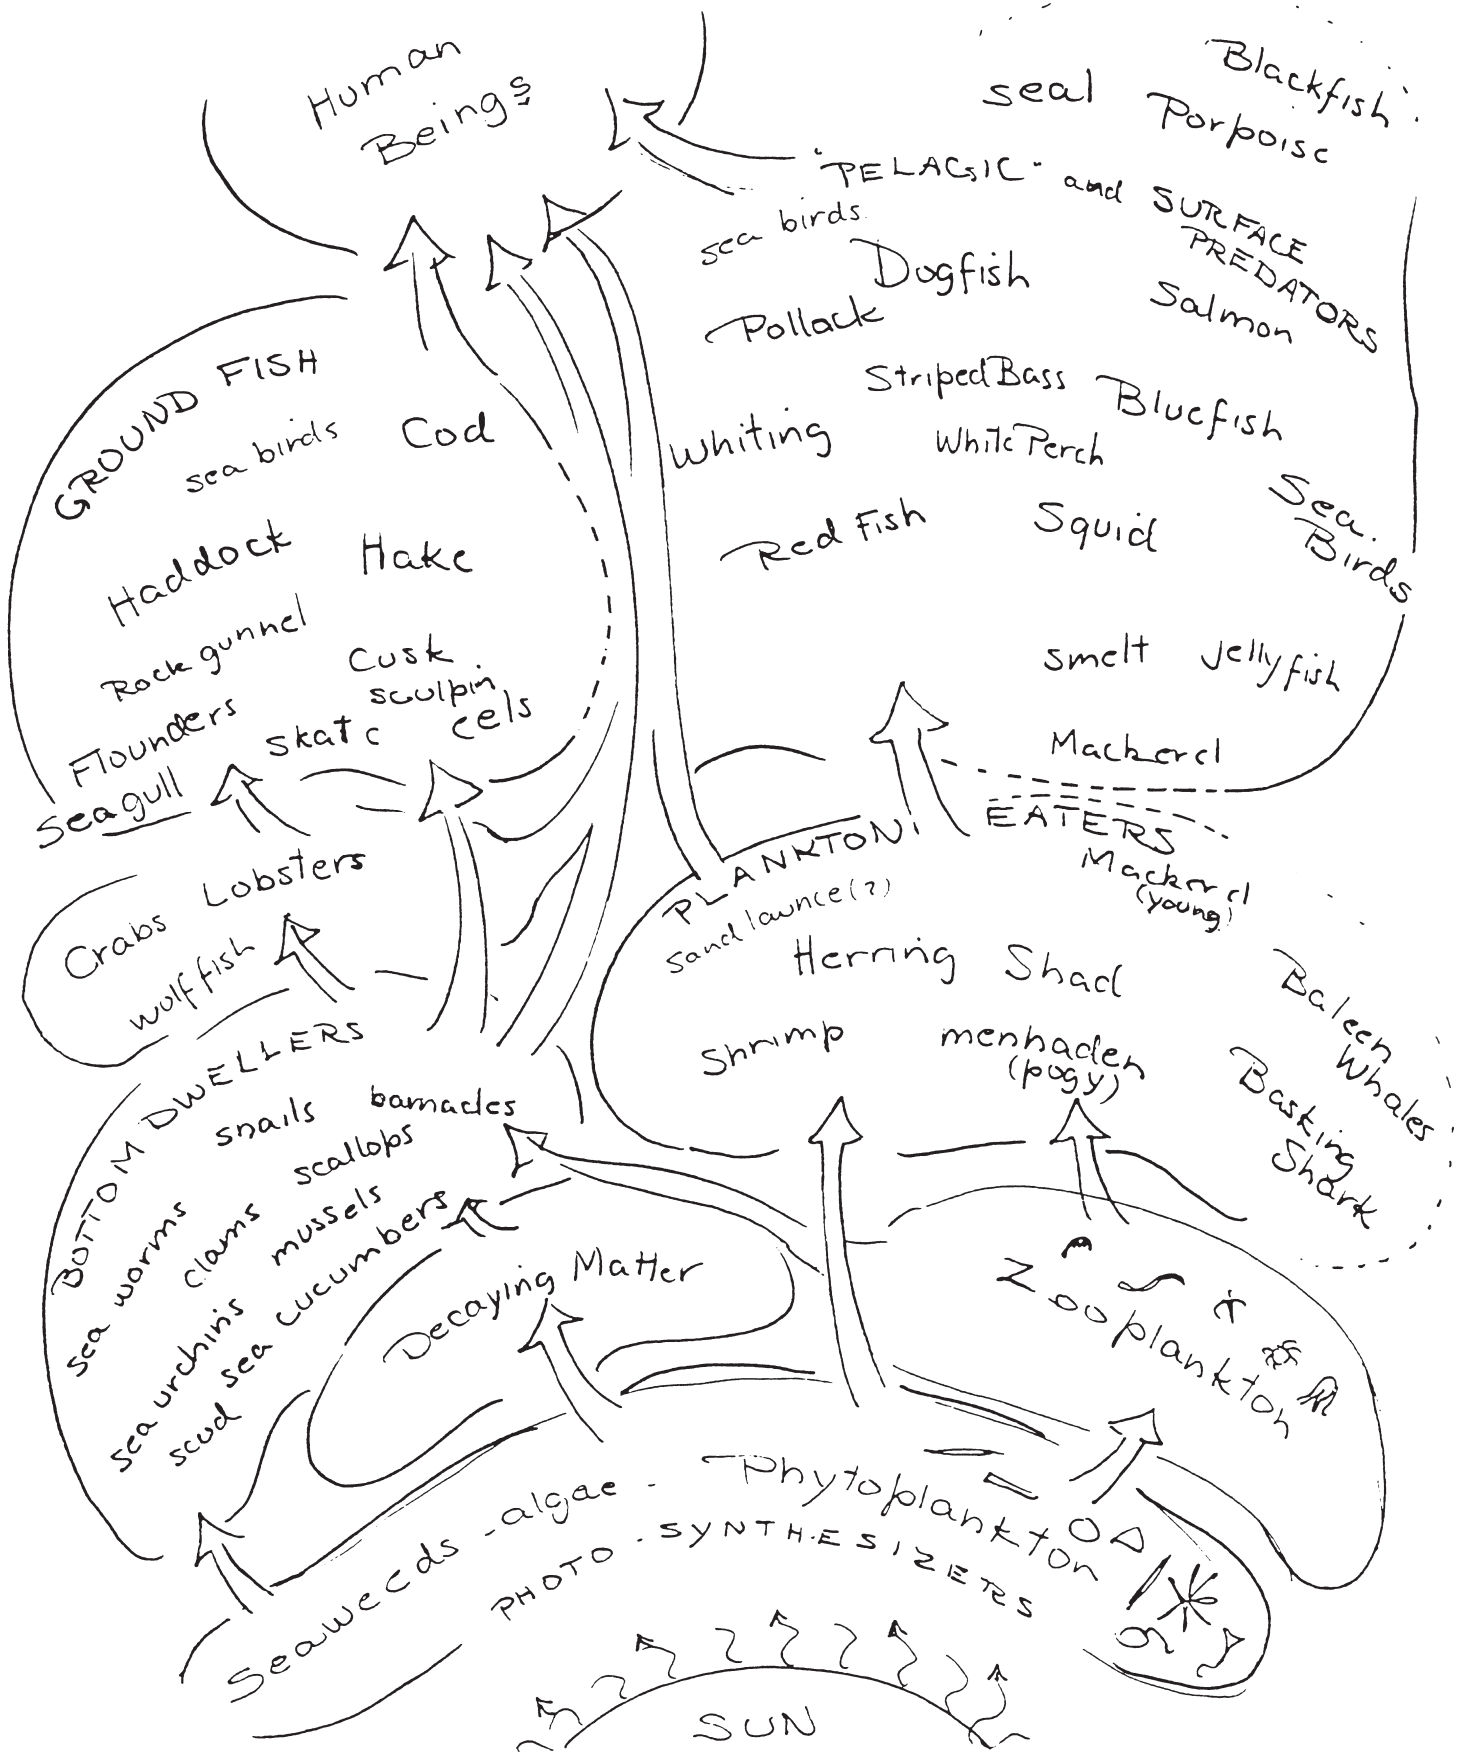 Human
Beings
seal
Blackfish
Porpoise
"PELAGIC" and SURFACE
PREDATORS
sea birds
Dogfish
Pollack
Salmon
Striped Bass
Bluefish
Whiting
White Perch
Red Fish
Squid
Sea
Birds
smelt
Jellyfish
Mackerel
GROUND FISH
sea birds
Cod
Haddock
Hake
Rock gunnel
Cusk
sculpin
Flounders
skate
eels
Seagull
Lobsters
Crabs
wolf fish
PLANKTON
EATERS
Mackerel
(young)
Sand launce (?)
Herring
Shad
Shrimp
menhaden
(pogy)
Baleen
Whales
Basking
Shark
BOTTOM DWELLERS
snails
barnacles
scallops
sea worms
clams
mussels
sea urchins
sea cucumbers
scud
Decaying Matter
Zooplankton
Seaweeds - algae - Phytoplankton
PHOTO-SYNTHESIZERS
SUN